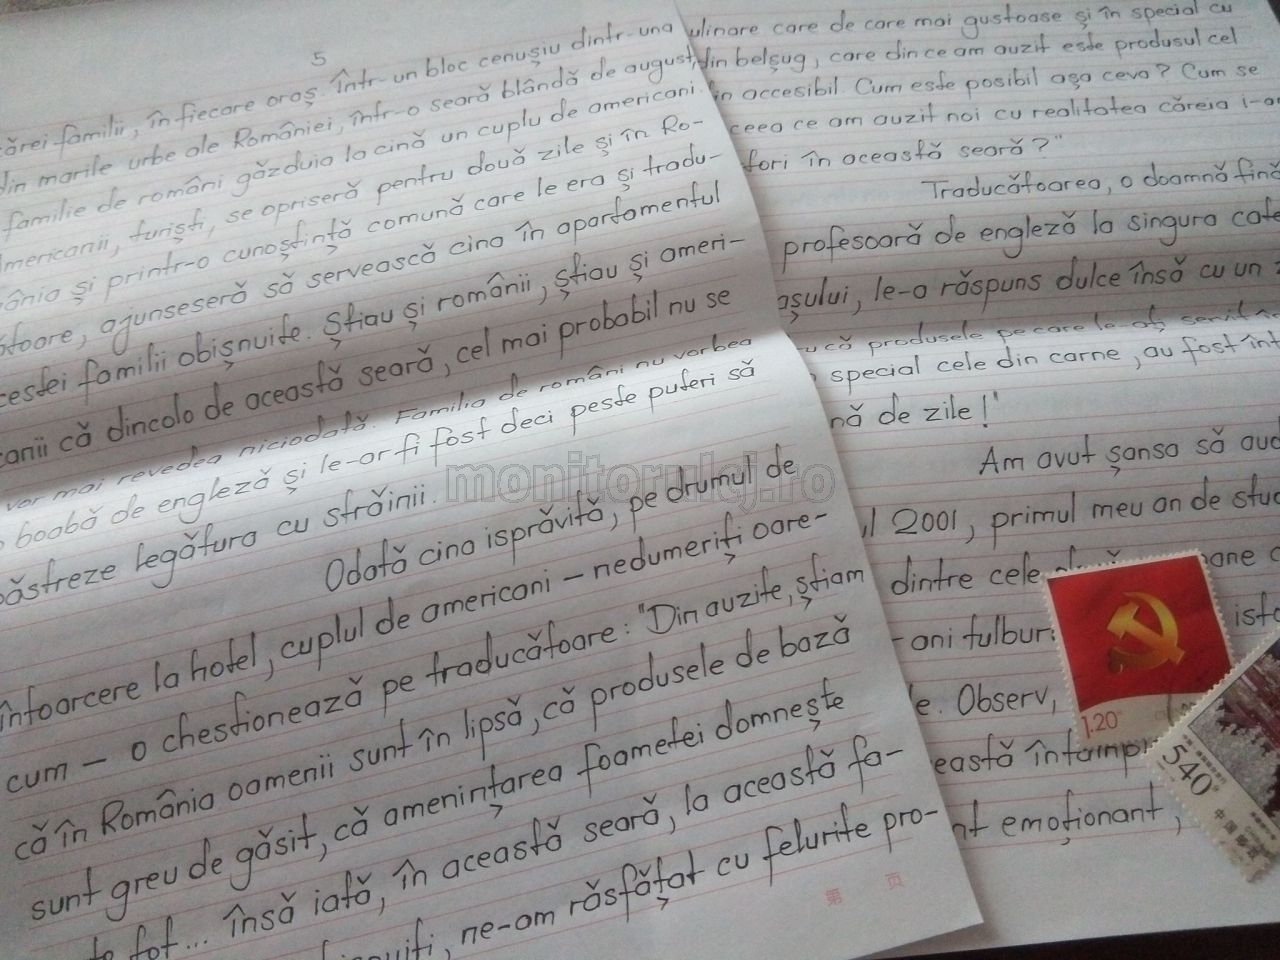 5
ărei familii, în fiecare oraș. Într-un bloc cenușiu dintr-una
din marile urbe ale României, într-o seară blândă de august,
familie de români găzduia la cină un cuplu de americani.
mericanii, turiști, se opriseră pentru două zile și în Ro-
ânia și printr-o cunoștință comună care le era și tradu-
ătoare, ajunseseră să servească cina în apartamentul
cestei familii obișnuite. Știau și românii, știau și ameri-
canii că dincolo de această seară, cel mai probabil nu se
vor mai revedea niciodată. Familia de români nu vorbea
o boabă de engleză și le-ar fi fost deci peste puteri să
păstreze legătura cu străinii.
Odată cina isprăvită, pe drumul de
întoarcere la hotel, cuplul de americani – nedumeriți oare-
cum – o chestionează pe traducătoare: "Din auzite, știam
că în România oamenii sunt în lipsă, că produsele de bază
sunt greu de găsit, că amenințarea foametei domnește
tot... însă iată, în această seară, la această fa-
ne-am răsfățat cu felurite pro-
第 页
ulinare care de care mai gustoase și în special cu
din belșug, care din ce am auzit este produsul cel
in accesibil. Cum este posibil așa ceva? Cum se
ceea ce am auzit noi cu realitatea căreia i-am
tori în această seară?"
Traducătoarea, o doamnă fină
profesoară de engleză la singura cate
așului, le-a răspuns dulce însă cu un
ucă produsele pe care le-ați servit în
special cele din carne, au fost înt
nă de zile!"
Am avut șansa să aud
ul 2001, primul meu an de stud
dintre cele oane
-ani tulbur isto
le. Observ,
eastă întâmp
nt emoționant,
1.20
540
中国邮政
monitorulcj.ro